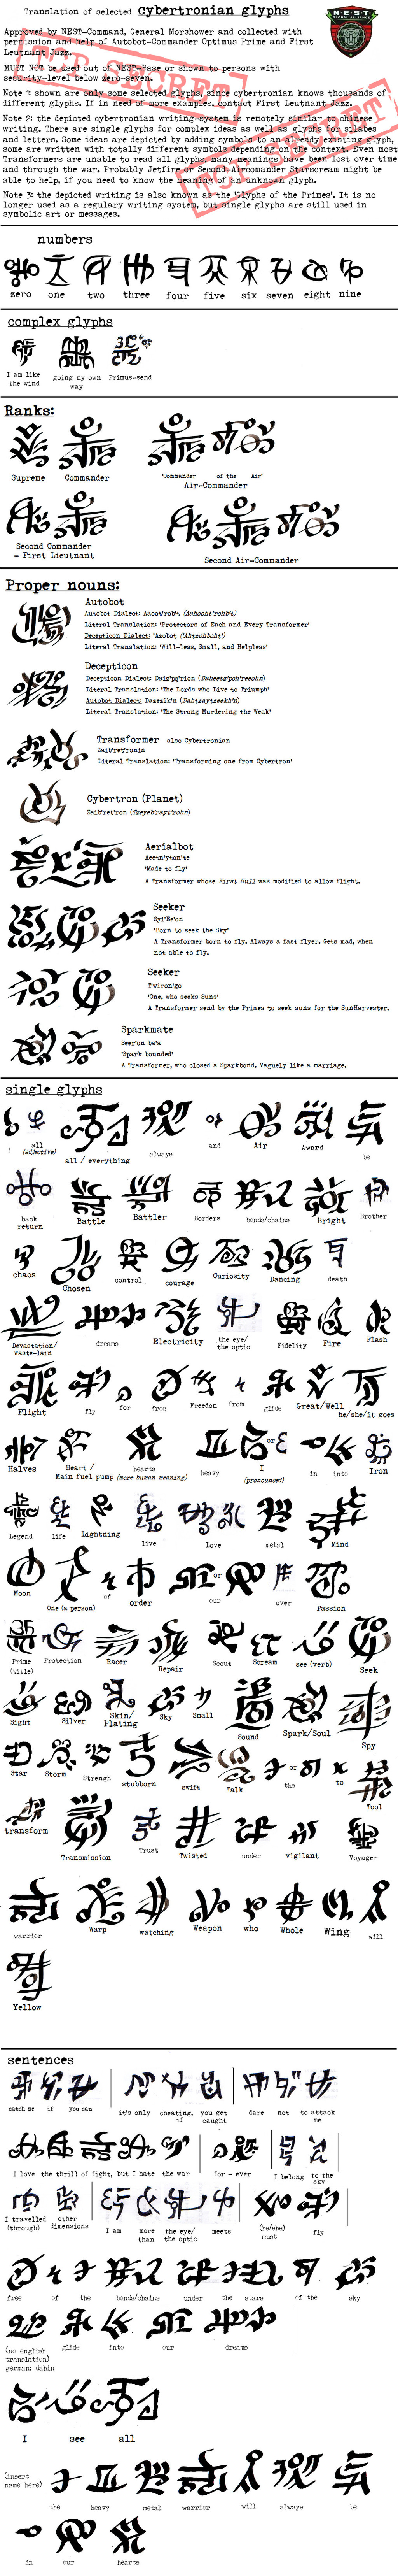 Translation of selected cybertronian glyphs
NEST
GLOBAL ALLIANCE
Approved by NEST-Command, General Morshower and collected with
permission and help of Autobot-Commander Optimus Prime and First
Leutnant Jazz.
MUST NOT be used out of NEST-Base or shown to persons with
security-level below zero-seven.
TOP SECRET
Note 1: shown are only some selected glyphs, since cybertronian knows thousands of
different glyphs. If in need of more examples, contact First Leutnant Jazz.
Note 2: the depicted cybertronian writing-system is remotely similar to chinese
writing. There are single glyphs for complex ideas as well as glyphs for silabes
and letters. Some ideas are depicted by adding symbols to an already existing glyph,
some are written with totally different symbols depending on the context. Even most
Transformers are unable to read all glyphs, many meanings have been lost over time
and through the war. Probably Jetfire or Second-Aircomander Starscream might be
able to help, if you need to know the meaning of an unknown glyph.
TOP SECRET
Note 3: the depicted writing is also known as the 'Glyphs of the Primes'. It is no
longer used as a regulary writing system, but single glyphs are still used in
symbolic art or messages.
numbers
zero one two three four five six seven eight nine
complex glyphs
I am like
the wind
going my own
way
Primus-send
Ranks:
Supreme Commander
'Commander of the Air'
Air-Commander
Second Commander
= First Lieutnant
Second Air-Commander
Proper nouns:
Autobot
Autobot Dialect: Aaoot'rob't (Aahooht'rohb't)
Literal Translation: 'Protectors of Each and Every Transformer'
Decepticon Dialect: 'Azobot (Ahtzohboht)
Literal Translation: 'Will-less, Small, and Helpless'
Decepticon
Decepticon Dialect: Dais'pq'rion (Daheets'pqh'reeohn)
Literal Translation: 'The Lords who Live to Triumph'
Autobot Dialect: Dazezik'n (Dahtzaytzeekh'n)
Literal Translation: 'The Strong Murdering the Weak'
Transformer also Cybertronian
Zaib'ret'ronin
Literal Translation: 'Transforming one from Cybertron'
Cybertron (Planet)
Zaib'ret'ron (Tzeyeb'rayt'rohn)
Aerialbot
Aeetn'yton'te
'Made to fly'
A Transformer whose First Hull was modified to allow flight.
Seeker
Syi'Ee'on
'Born to seek the Sky'
A Transformer born to fly. Always a fast flyer. Gets mad, when
not able to fly.
Seeker
Twiron'go
'One, who seeks Suns'
A Transformer send by the Primes to seek suns for the SunHarvester.
Sparkmate
Seer'on ba'a
'Spark bounded'
A Transformer, who closed a Sparkbond. Vaguely like a marriage.
single glyphs
! all
(adjective)
all / everything always and Air Award be
back
return
Battle Battler Borders bonds/chains Bright Brother
chaos Chosen control courage Curiosity Dancing death
Devastation/
Waste-lain
dreams Electricity the eye/
the optic
Fidelity Fire Flash
Flight fly for free Freedom from glide Great/Well he/she/it goes
Halves Heart /
Main fuel pump
hearts
(more human meaning)
heavy or
I
(pronounced)
in into Iron
Legend life Lightning live Love metal Mind
Moon One (a person) of order or
our
over Passion
Prime
(title)
Protection Racer Repair Scout Scream see (verb) Seek
Sight Silver Skin/
Plating
Sky Small Sound Spark/Soul Spy
Star Storm Strengh stubborn swift Talk or
the
to Tool
transform Transmission Trust Twisted under vigilant Voyager
warrior Warp watching Weapon who Whole Wing will
Yellow
sentences
catch me if you can
it's only cheating, if you get caught
dare not to attack me
I love the thrill of fight, but I hate the war
for - ever
I belong to the sky
I travelled
(through)
other
dimensions
I am more
than
the eye/
the optic
meets
(he/she)
must
fly
free of the bonds/chains under the stars of the sky
(no english
translation)
german: dahin
glide into our dreams
I see all
(insert
name here)
the heavy metal warrior will always be
in our hearts